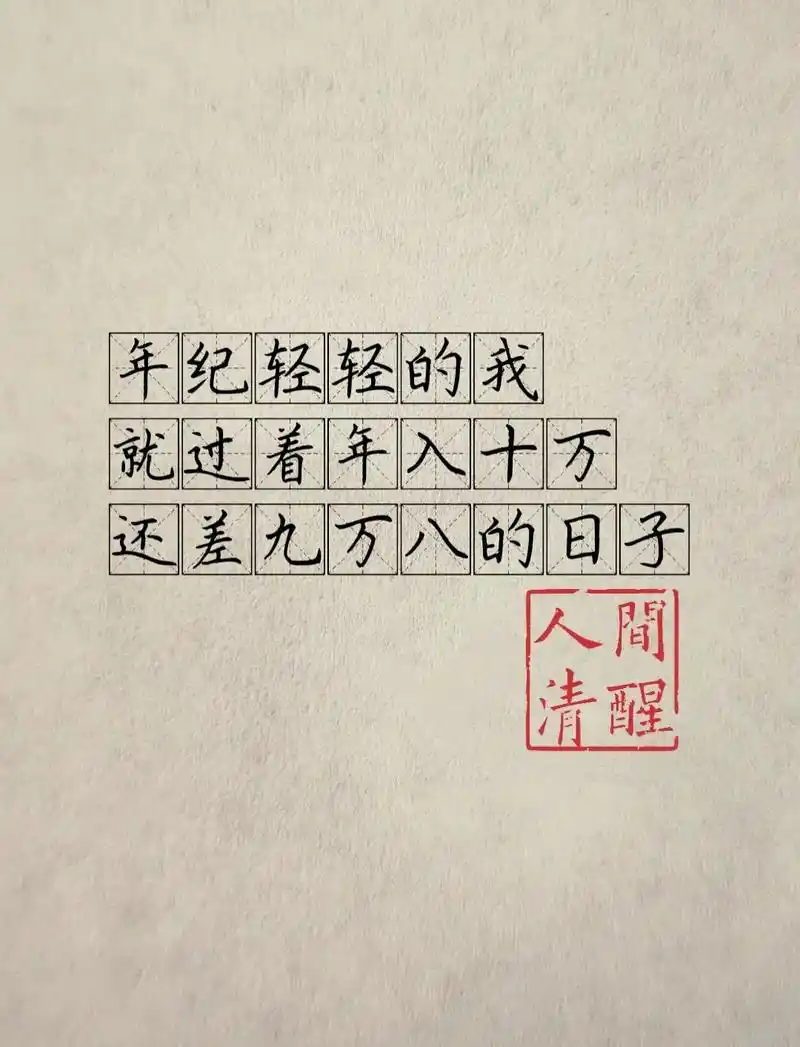 年纪轻轻的我
就过着年入十万
还差九万八的日子
人間
清醒